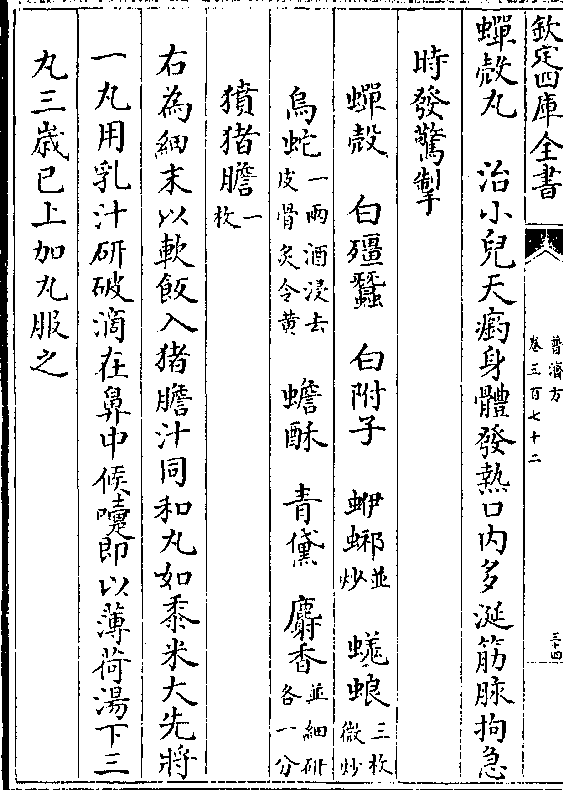 欽定四庫全書
普濟方
卷三百七十二
三十四
蟬殼丸　治小兒天瘹身體發熱口内多涎筋脉拘急
時發驚掣
蟬殼　白殭蠶　白附子　蛜𧌴並炒　蜣蜋三枚微炒
烏蛇一兩酒浸去皮骨炙令黄　蟾酥　青黛　麝香並細研各一分
獖猪膽一枚
右為細末以軟飯入猪膽汁同和丸如黍米大先將
一丸用乳汁研破滴在鼻中候嚏即以薄荷湯下三
丸三歲已上加丸服之